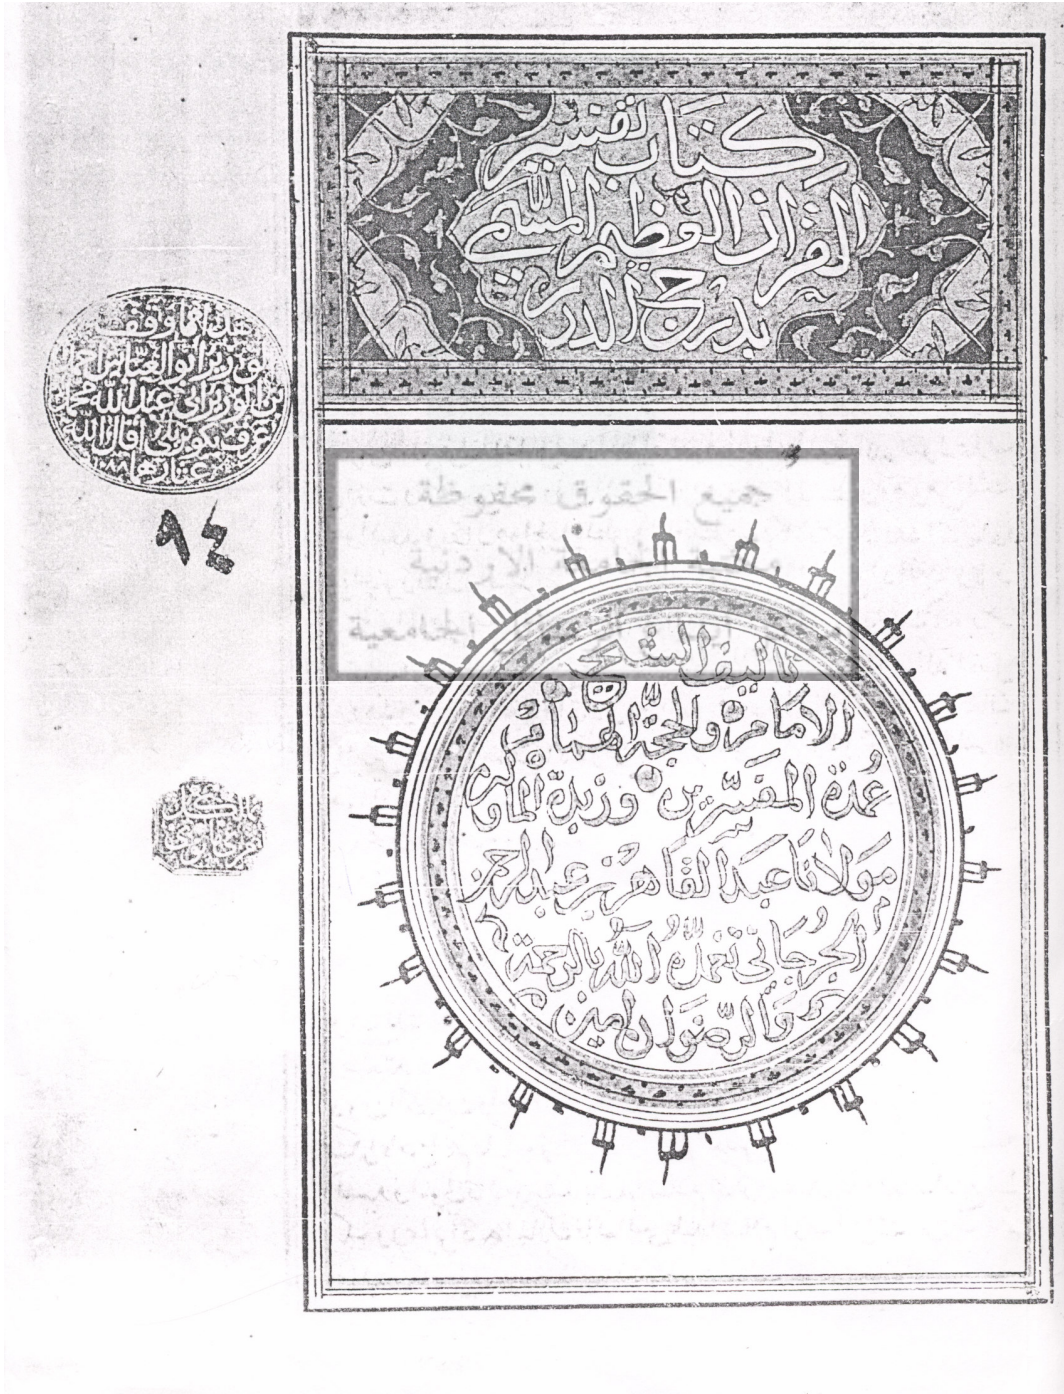 كتاب تفسير
القرآن العظيم المسمى
بدرج الدرر
هذا مما وقف
الوزير ابو العباس احمد
بن الوزير ابي عبد الله محمد
عرف بكوبريلي اقال الله
عثارهما ١٠٨٨
٩٤
جميع الحقوق محفوظة
الاردنية
الجامعية
تأليف الشيخ
الامام والحجة الهمام
عمدة المفسرين وزبدة
مولانا عبد القاهر بن عبد الرحمن
الجرجاني تغمده الله بالرحمة
والرضوان امين